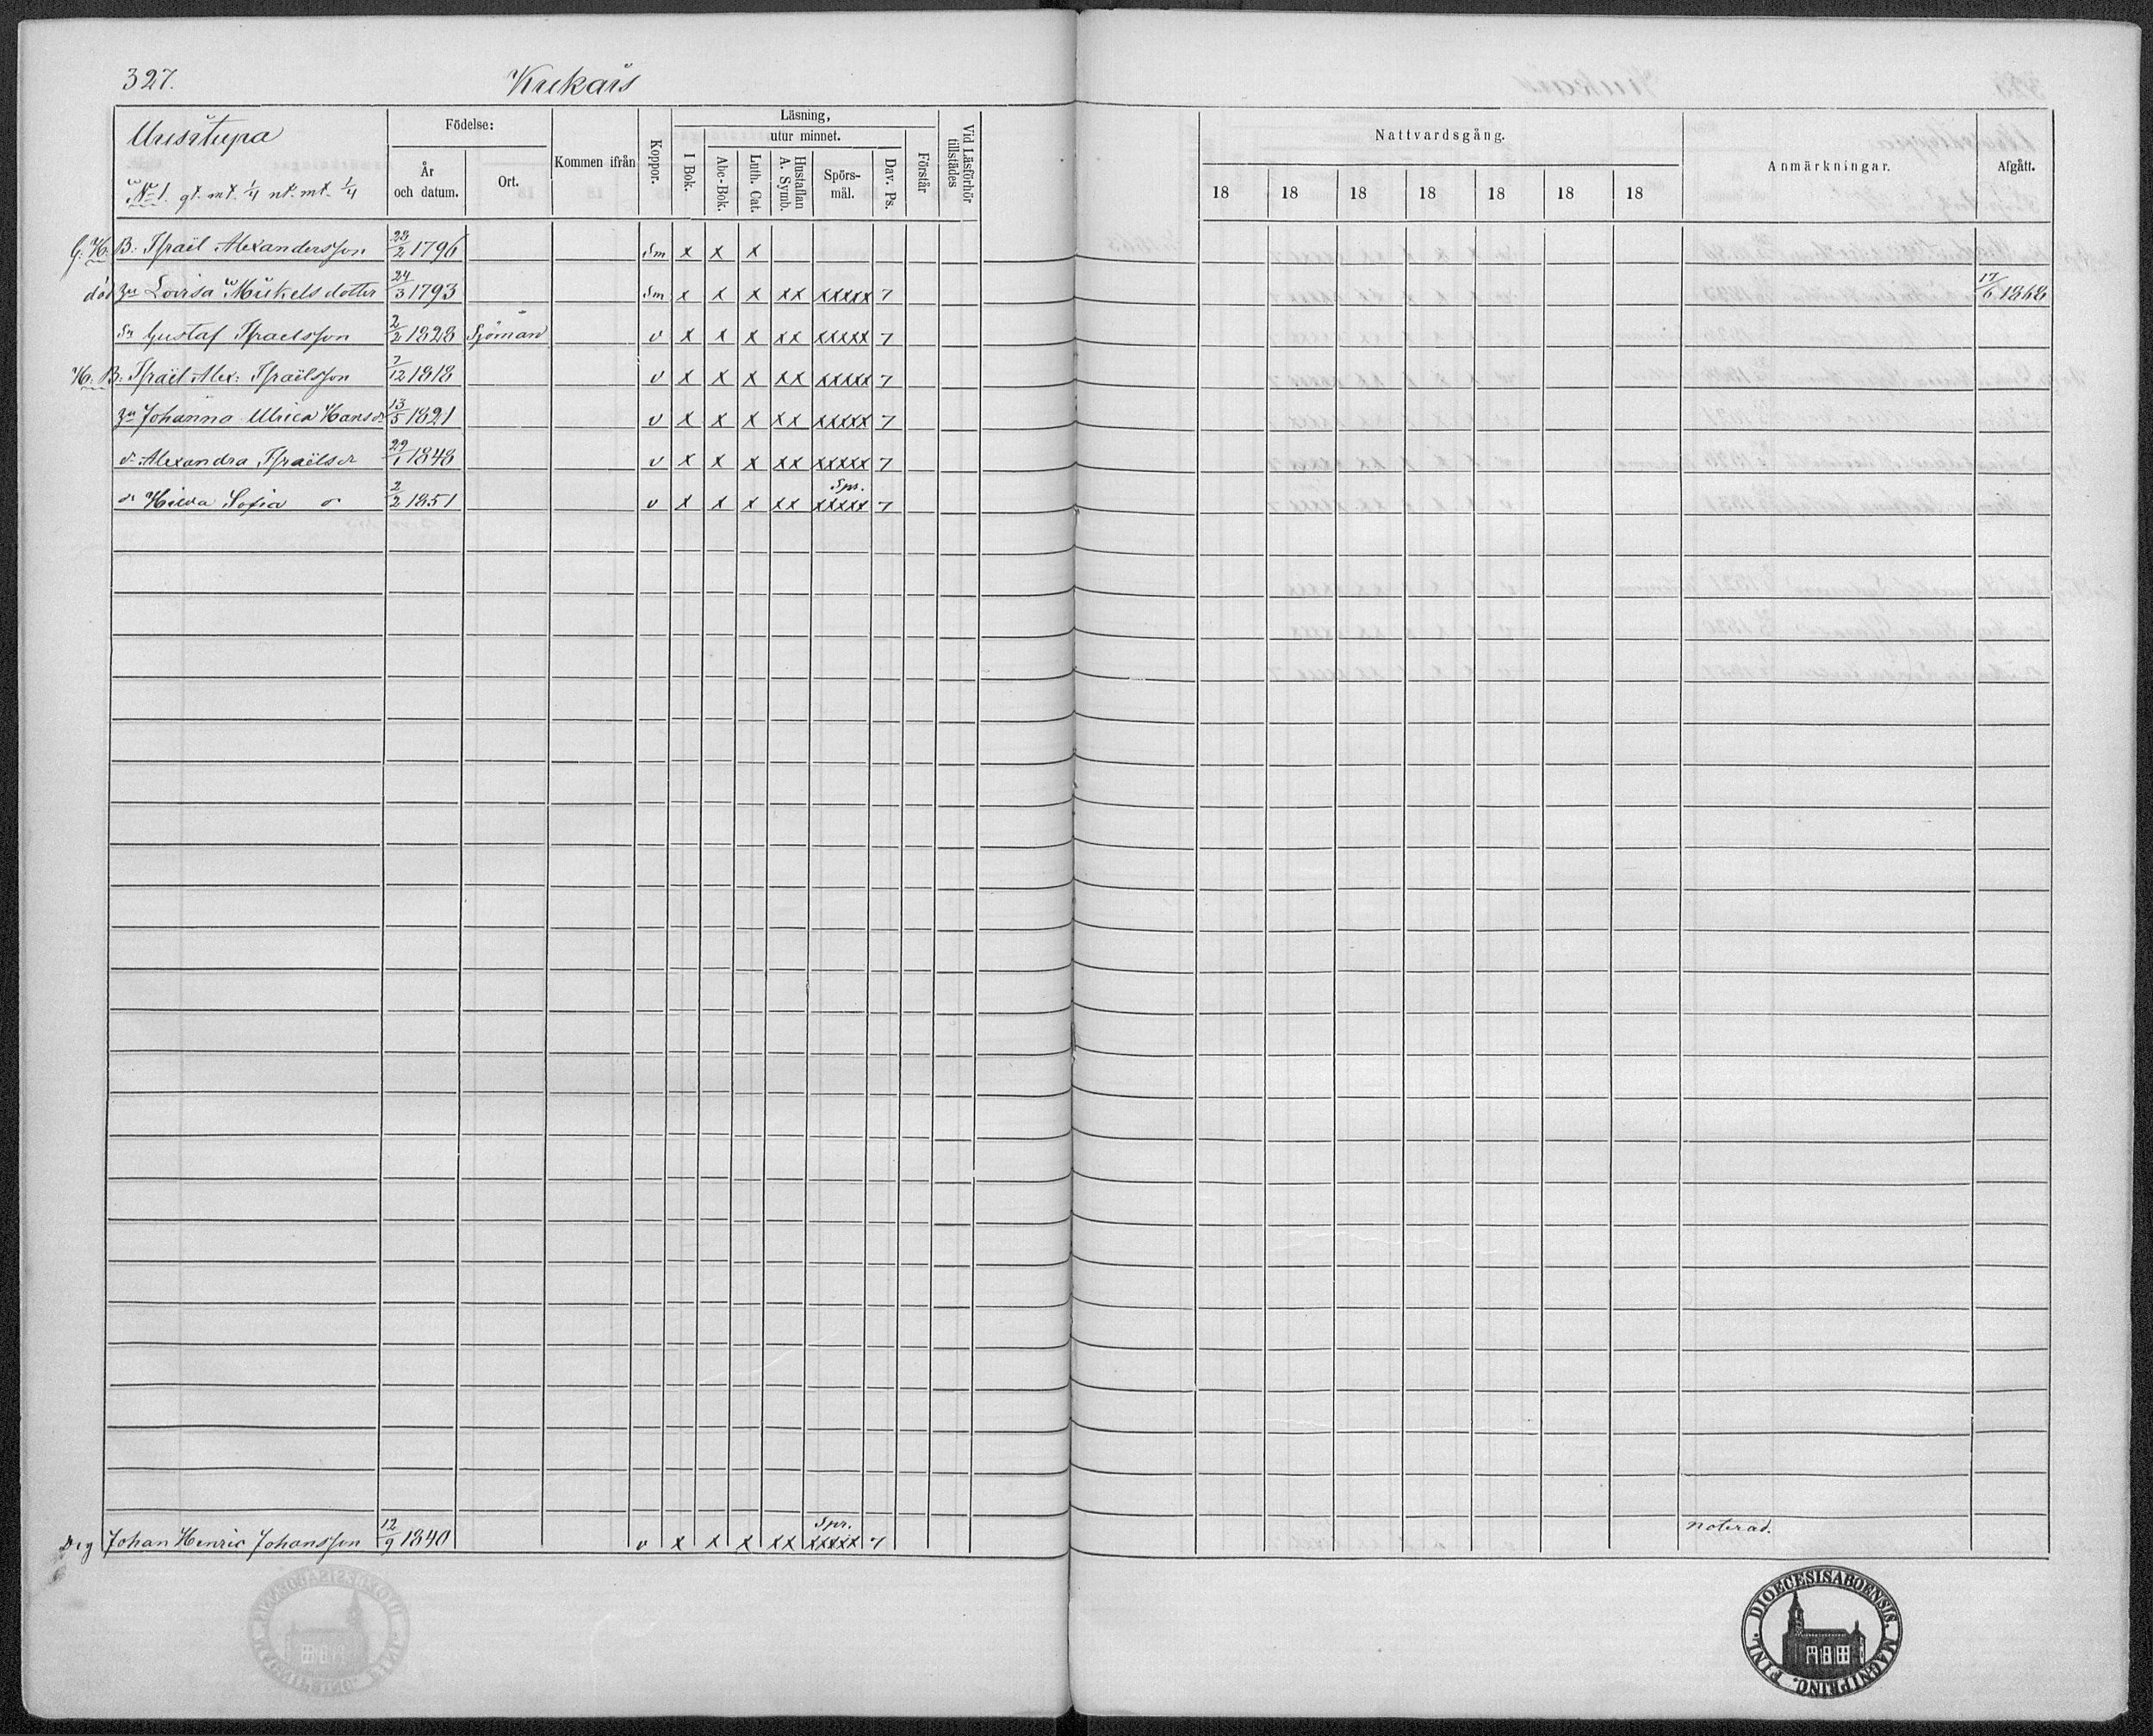 327. Krekais
Födelse: Läsning,
utur minnet.
Nattvardsgång.
Anmärkningar. Afgått.
År och datum. Ort. Kommen ifrån Koppor. I Bok. Abc-Bok. Luth. Cat. Hustaflan A. Symb. Spörs-mål. Dav. Ps. Förstår Vid Läsförhör tillstädes
18 18 18 18 18 18 18
N:o 1. gt. mt. 1/4 nt. mt. 1/4
B: Israël Alexandersson 23/2 1796 Sm x x x
död Lovisa Mickelsdotter 24/3 1793 Sm x x x xx xxxxx 7 17/6 1868
Sn Gustaf Israelsson 2/2 1828 Sjöman v x x x xx xxxxx 7
B: Israël Alex: Israëlsson 7/12 1818 v x x x xx xxxxx 7
Johanna Ulrica Hansdr 13/5 1821 v x x x xx xxxxx 7
dr Alexandra Israëlsdr 29/1 1848 v x x x xx xxxxx 7
Spr.
dr Hilda Sofia 2/2 1851 v x x x xx xxxxx 7
Spr. noterad.
Dräg Johan Henric Johansson 12/9 1840 v x x x xx xxxxx 7
FINL. DIOECESIS ABOENSIS. MAGNI PRINC.